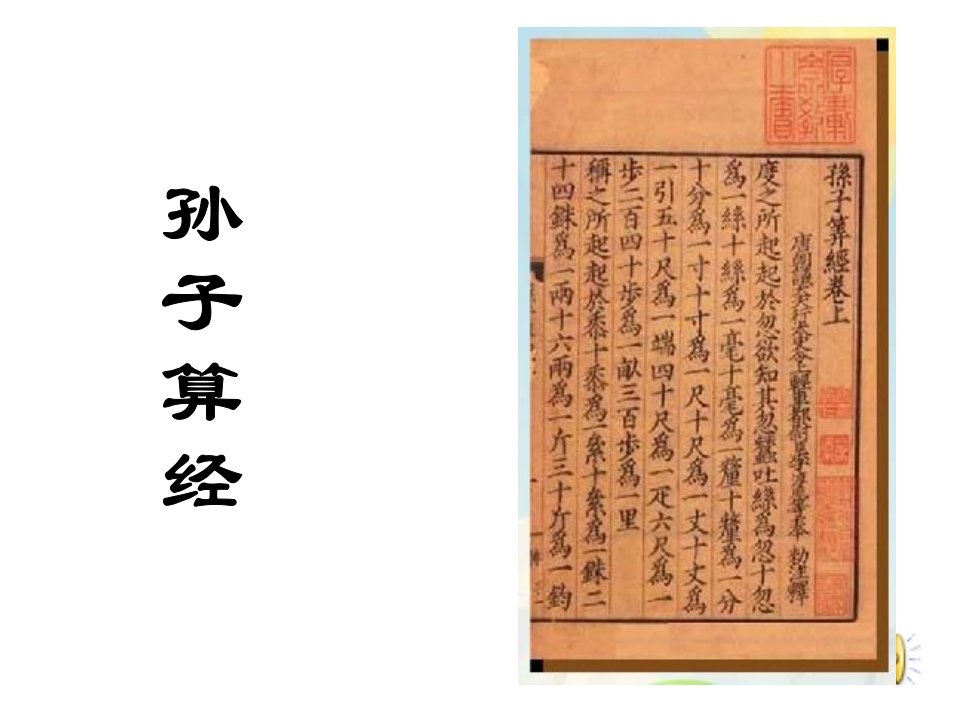 孙子算经
孫子算經卷上
唐朝議大夫行太史令上輕車都尉臣李淳風等奉 勅注釋
度之所起起於忽欲知其忽蠶吐絲為忽十忽
為一絲十絲為一毫十毫為一釐十釐為一分
十分為一寸十寸為一尺十尺為一丈十丈為
一引五十尺為一端四十尺為一疋六尺為一
步二百四十步為一畝三百步為一里
稱之所起起於黍十黍為一絫十絫為一銖二
十四銖為一兩十六兩為一斤三十斤為一鈞